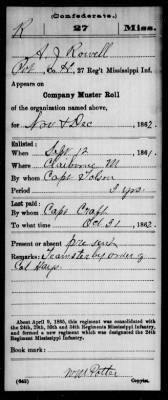 (Confederate.)
R 27 Miss.
A J Rowell
Pvt, Co. H, 27 Reg't Mississippi Inf.
Appears on
Company Muster Roll
of the organization named above,
for Nov & Dec, 1862.
Enlisted:
When Sept 12, 1861.
Where Claiborne M
By whom Capt
Period 3 yrs
Last paid:
By whom Capt Craft
To what time Oct 31, 1862.
Present or absent present
Remarks: Teamster by order of
Col Hays
About April 9, 1865, this regiment was consolidated with
the 24th, 29th, 30th and 34th Regiments Mississippi Infantry,
and formed a new regiment which was designated the 24th
Regiment Mississippi Infantry.
Book mark:
Wm Potter
(642) Copyist.